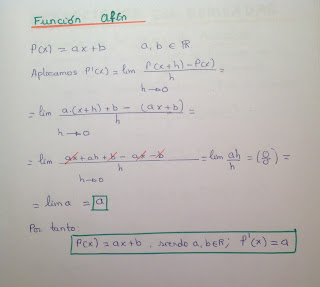 Función afín
f(x) = ax+b a,b ∈ ℝ
Aplicamos f'(x) = lim h→0 f(x+h)-f(x) / h =
= lim h→0 a·(x+h)+b - (ax+b) / h =
= lim h→0 ax+ah+b-ax-b / h = lim ah/h = (0/0) =
= lim a = a
Por tanto
f(x) = ax+b, siendo a,b∈ℝ; f'(x) = a